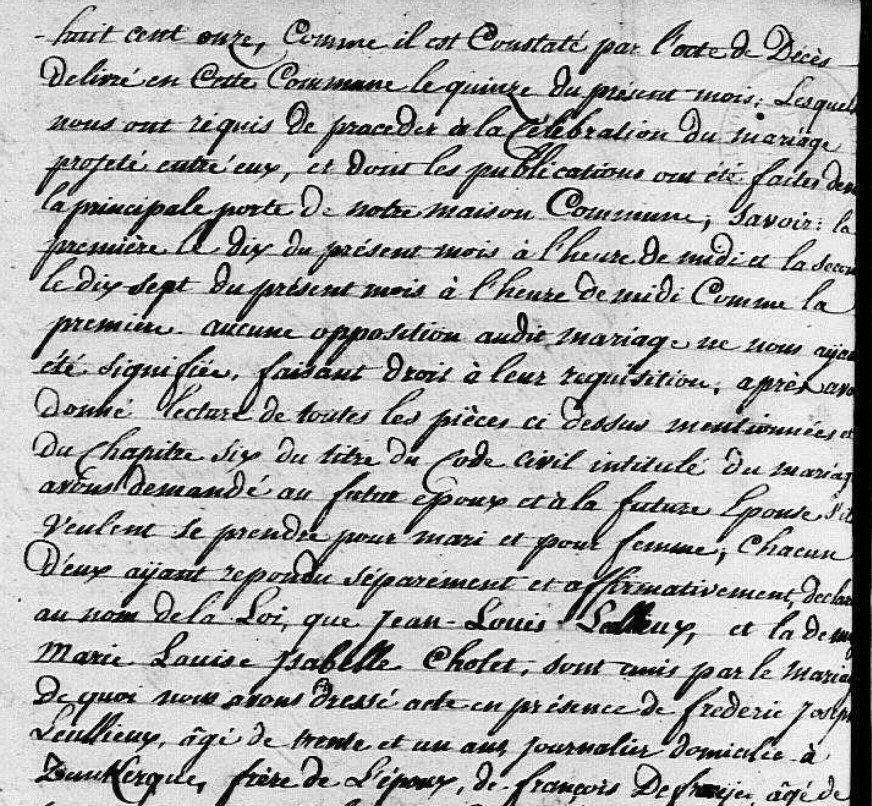 huit cent onze, Comme il est Constaté par l'acte de Décès
Delivré en Cette Commune le quinze du présent mois; Lesquels
nous ont requis de proceder à la Célébration du mariage
projeté entr'eux, et dont les publications ont été faites dev
la principale porte de notre maison Commune; Savoir: la
première le dix du présent mois à l'heure de midi et la secon
le dix sept du présent mois à l'heure de midi Comme la
première. aucune opposition audit mariage ne nous ayan
été signifiée, faisant droit à leur requisition, après avo
Donné lecture de toutes les pièces ci dessus mentionnées et
du Chapitre six du titre du Code Civil intitulé du mariag
avons demandé au futur époux et à la future Epouse s'il
Veulent se prendre pour mari et pour femme; Chacun
D'eux ayant repondu séparément et affirmativement, declar
au nom de la Loi, que Jean-Louis et la
Marie Louise Isabelle Cholet, sont unis par le Maria
de quoi nous avons dressé acte en présence de frederic Josep
Leullieux, âgé de trente et un ans, Journalier domicilié à
Dunkerque, frère de L'époux, de françois âgé de